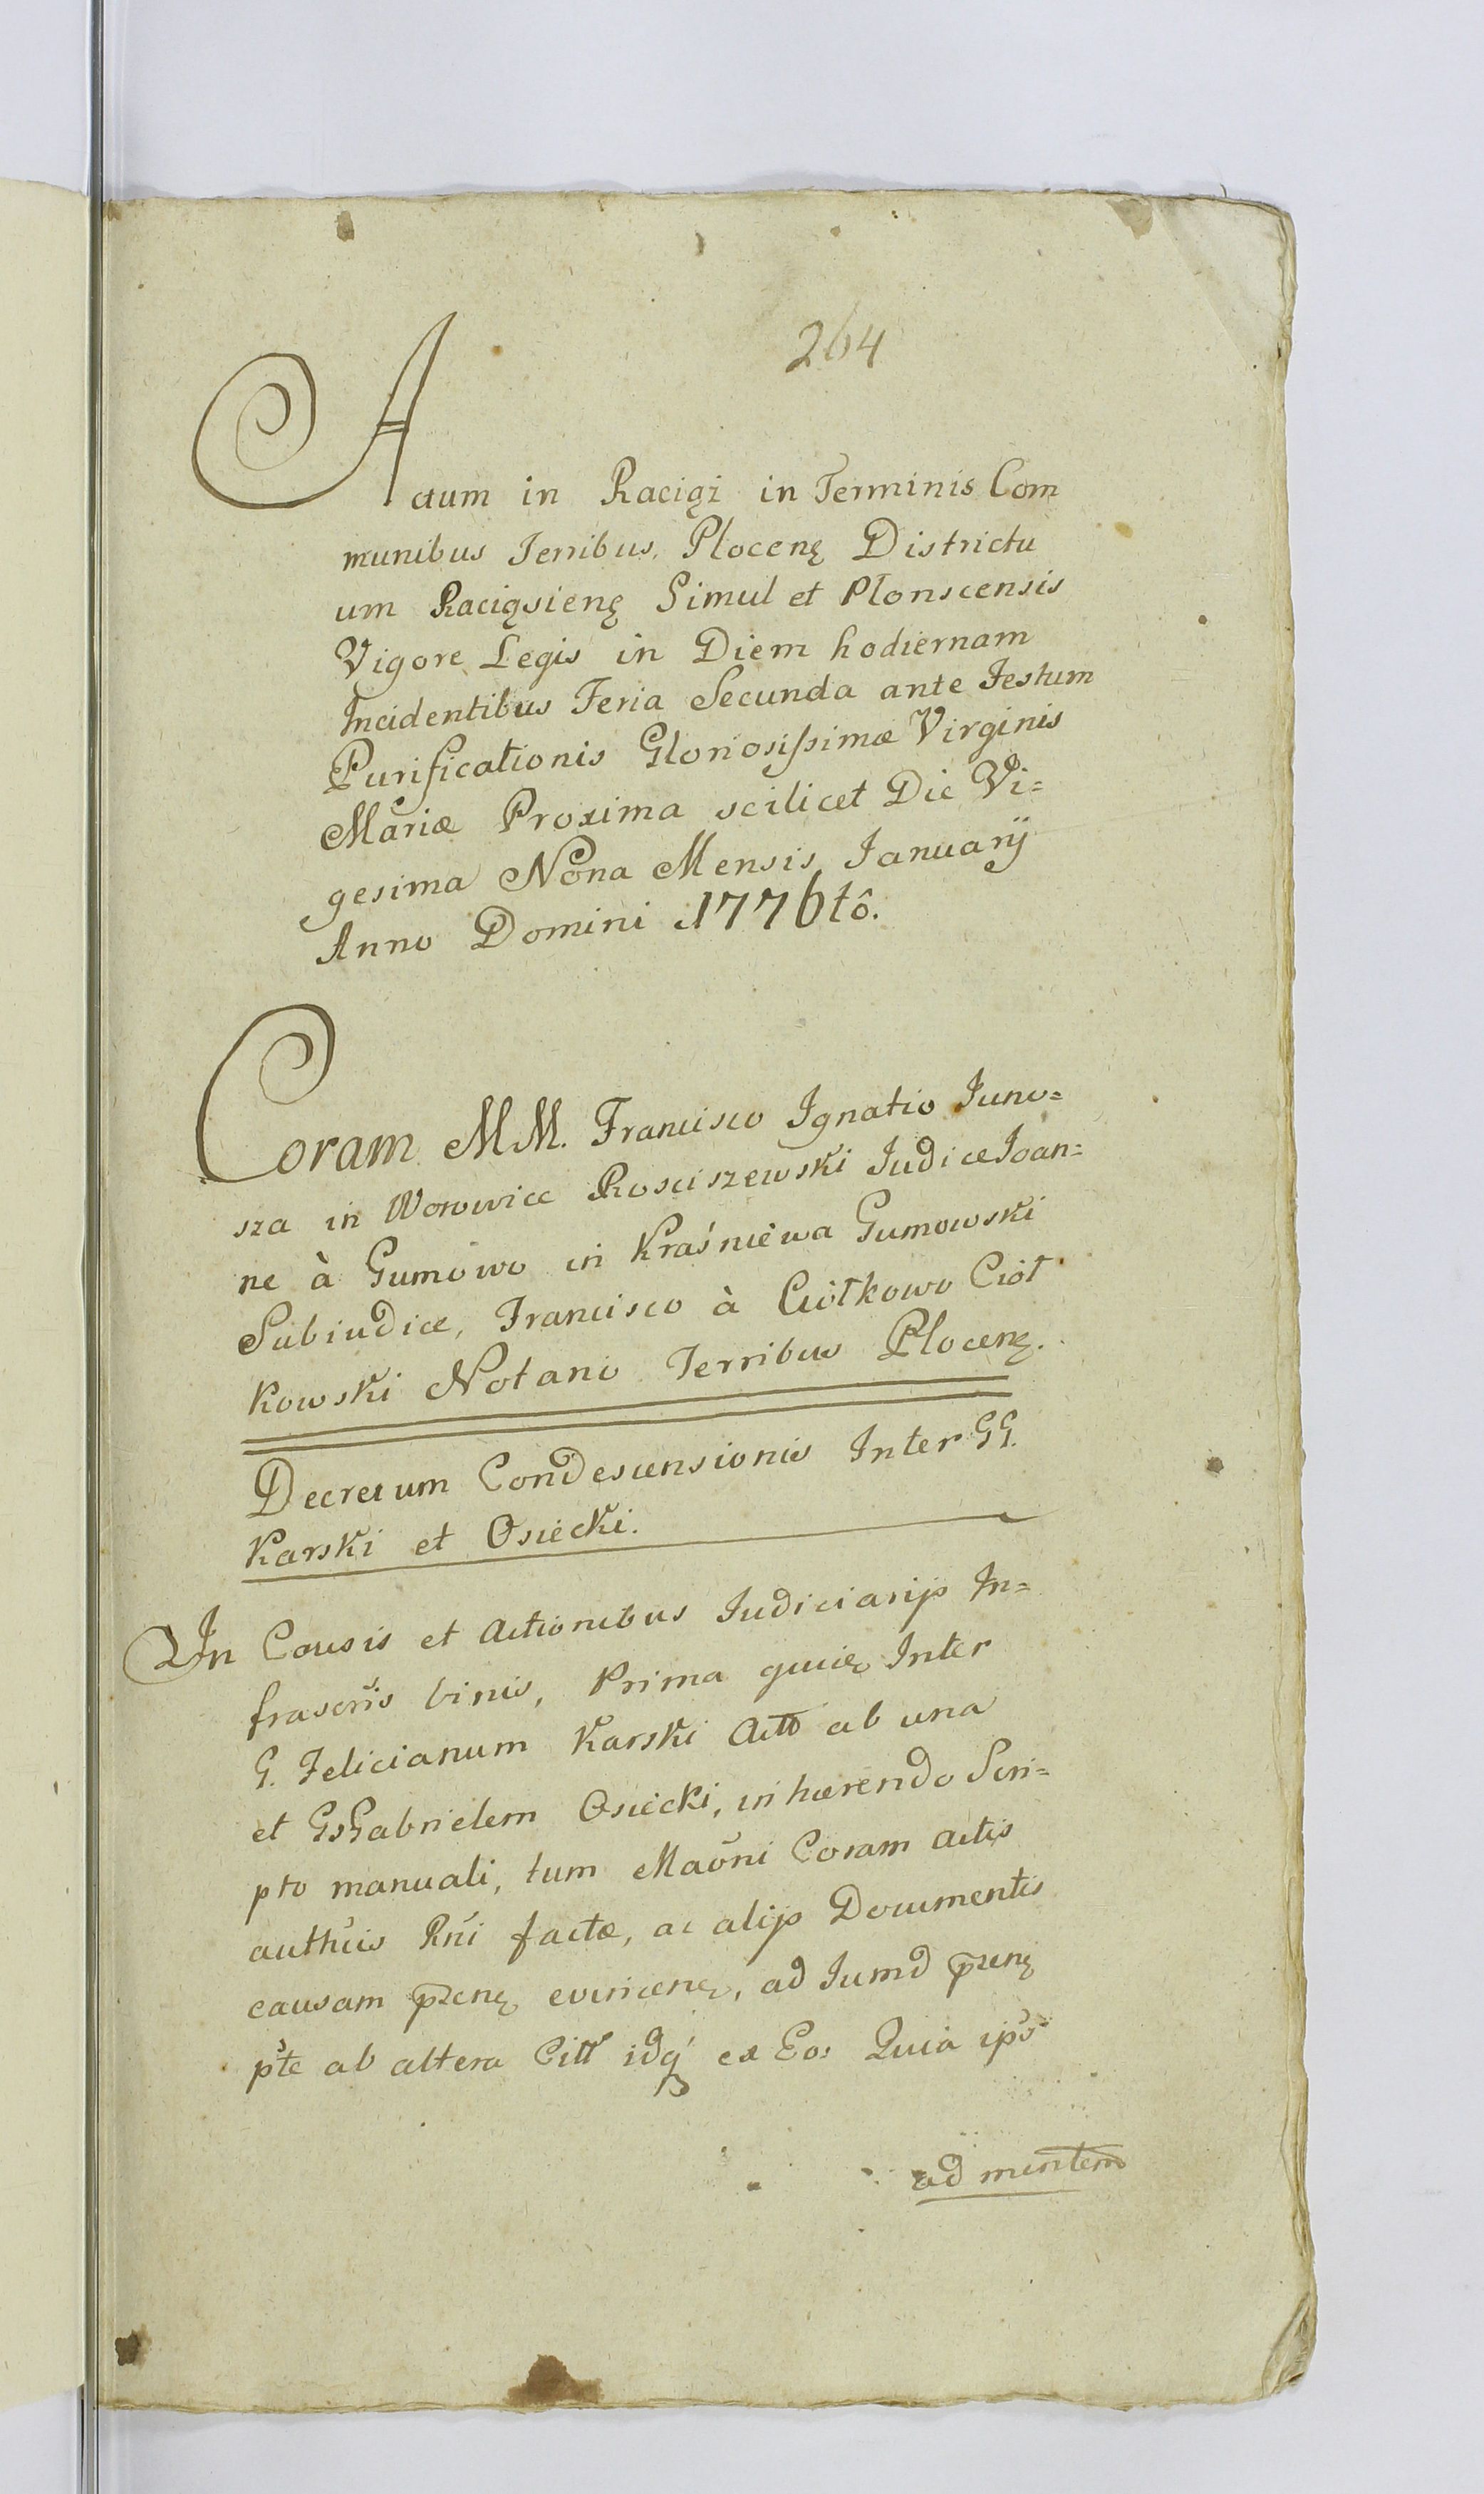 264
Actum in Raciąż in Terminis Com
munibus Terribus. Plocenę Districtu
um Raciąsienę Simul et Plonscensis
Vigore Legis in Diem hodiernam
Incidentibus Feria Secunda ante Festum
Purificationis Gloriosissimæ Virginis
Mariæ Proxima scilicet Die Vi=
gesima Nona Mensis Januarij
Anno Domini 1776tô.
Coram MM. Francisco Ignatio Juno=
sza in Worowice Rosciszewski Judice Joan=
ne à Gumowo in Kraśniewa Gumowski
Subiudice, Francisco à Ciółkowo Ciół
kowski Notario Terribus Plocenę.
Decretum Condescensionis Inter GG.
Karski et Osiecki.
In Causis et Actionibus Judiciarijs In=
frascris binis, Prima quiię Inter
G. Felicianum Karski Actt ab una
et Gs Gabrielem Osiecki, inhærendo Scri=
pto manuali, tum Maôni Coram Actis
authũis Rni factæ, ac alijs Documentis
causam przenę evincenę, ad Iumd przenę
pte ab altera Citt idq́ ex Eo: Quia ips
ad mentem